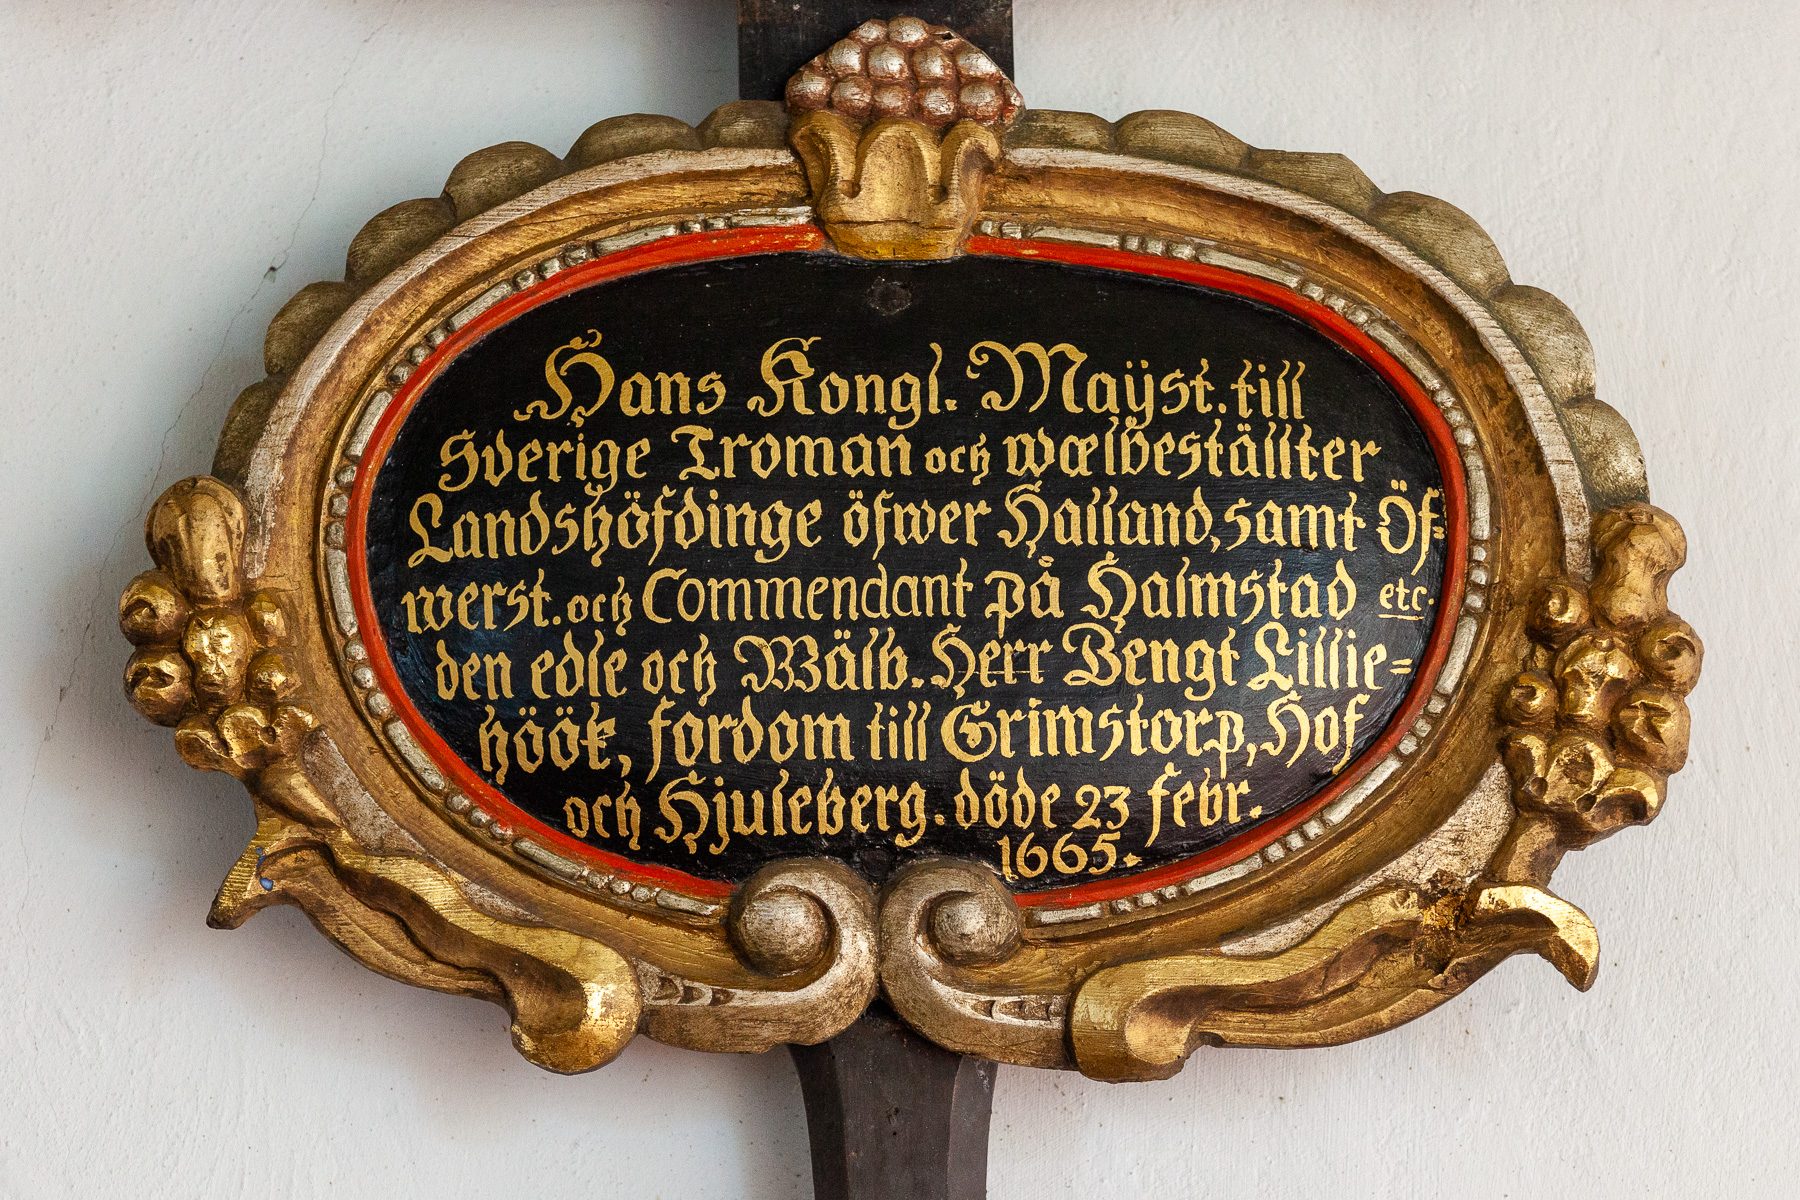 Hans Kongl. Maÿst. till
Sverige Troman och wœlbeställter
Landshöfdinge öfwer Halland, samt Öf=
werst. och Commendant på Halmstad etc.
den edle och Wälb. Herr Bengt Lillie=
höök, fordom till Grimstorp, Hof
och Hjuleberg. döde 23 febr.
1665.